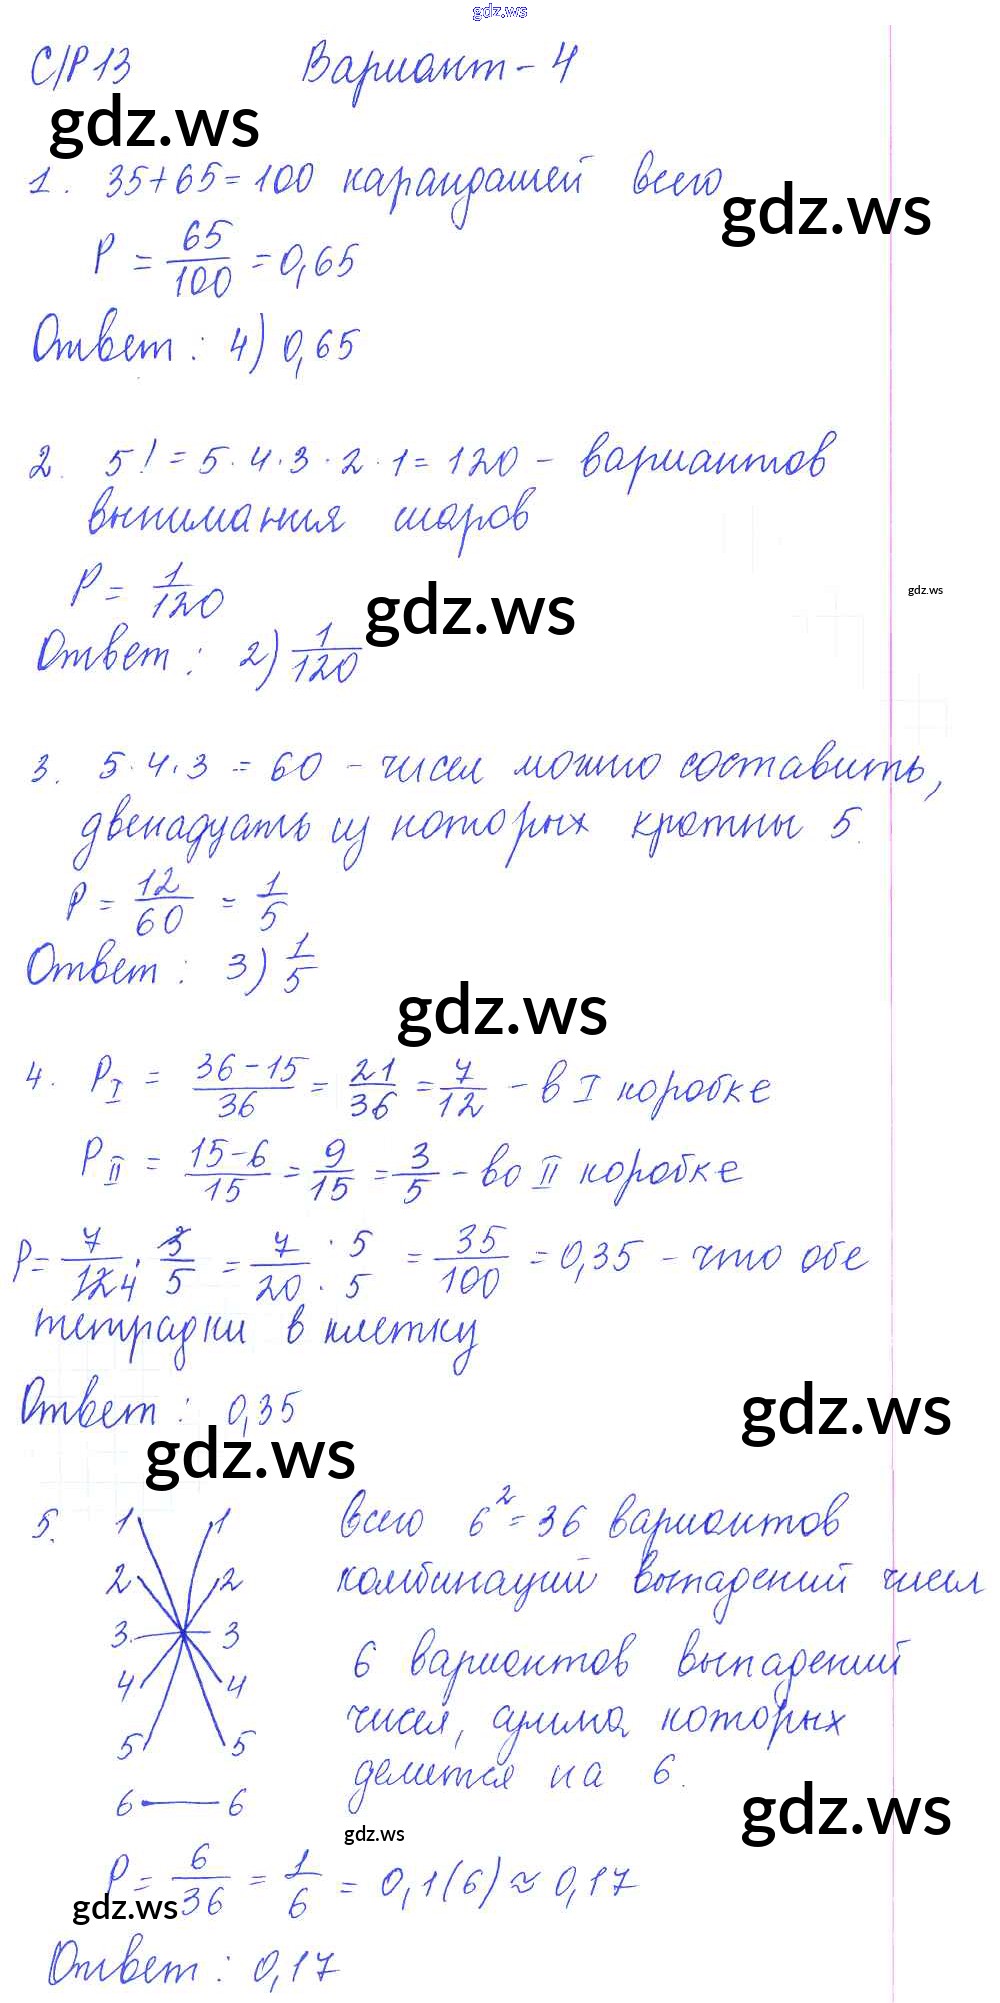 gdz.ws
С/Р 13 Вариант - 4
gdz.ws
1. 35+65=100 карандашей всего
gdz.ws
P = 65/100 = 0,65
Ответ: 4) 0,65
2. 5! = 5·4·3·2·1 = 120 - вариантов
вынимания шаров
P = 1/120
gdz.ws
gdz.ws
Ответ: 2) 1/120
3. 5·4·3 = 60 - чисел можно составить,
двенадцать из которых кратны 5.
P = 12/60 = 1/5
Ответ: 3) 1/5
gdz.ws
4. P_I = (36-15)/36 = 21/36 = 7/12 - в I коробке
P_II = (15-6)/15 = 9/15 = 3/5 - во II коробке
P = 7/12 4 · 3/5 = 7/20 · 5/5 = 35/100 = 0,35 - что обе
тетрадки в клетку
Ответ: 0,35
gdz.ws
gdz.ws
5. 1 1 всего 6² = 36 вариантов
2 2 комбинаций выпадений чисел
3 3 6 вариантов выпадений
4 4 чисел, сумма которых
5 5 делится на 6.
6 6
gdz.ws
gdz.ws
P = 6/36 = 1/6 = 0,1(6) ≈ 0,17
gdz.ws
Ответ: 0,17